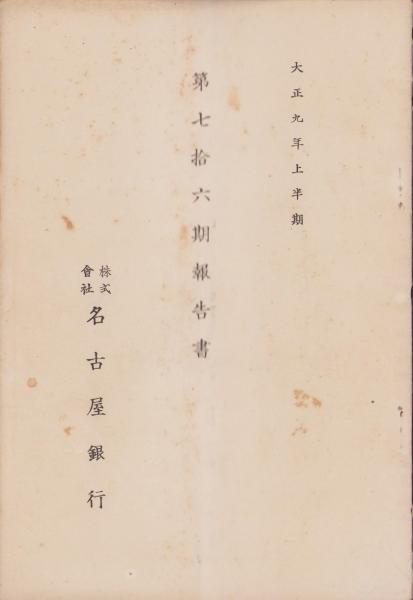 大正九年上半期
第七拾六期報告書
株式會社名古屋銀行